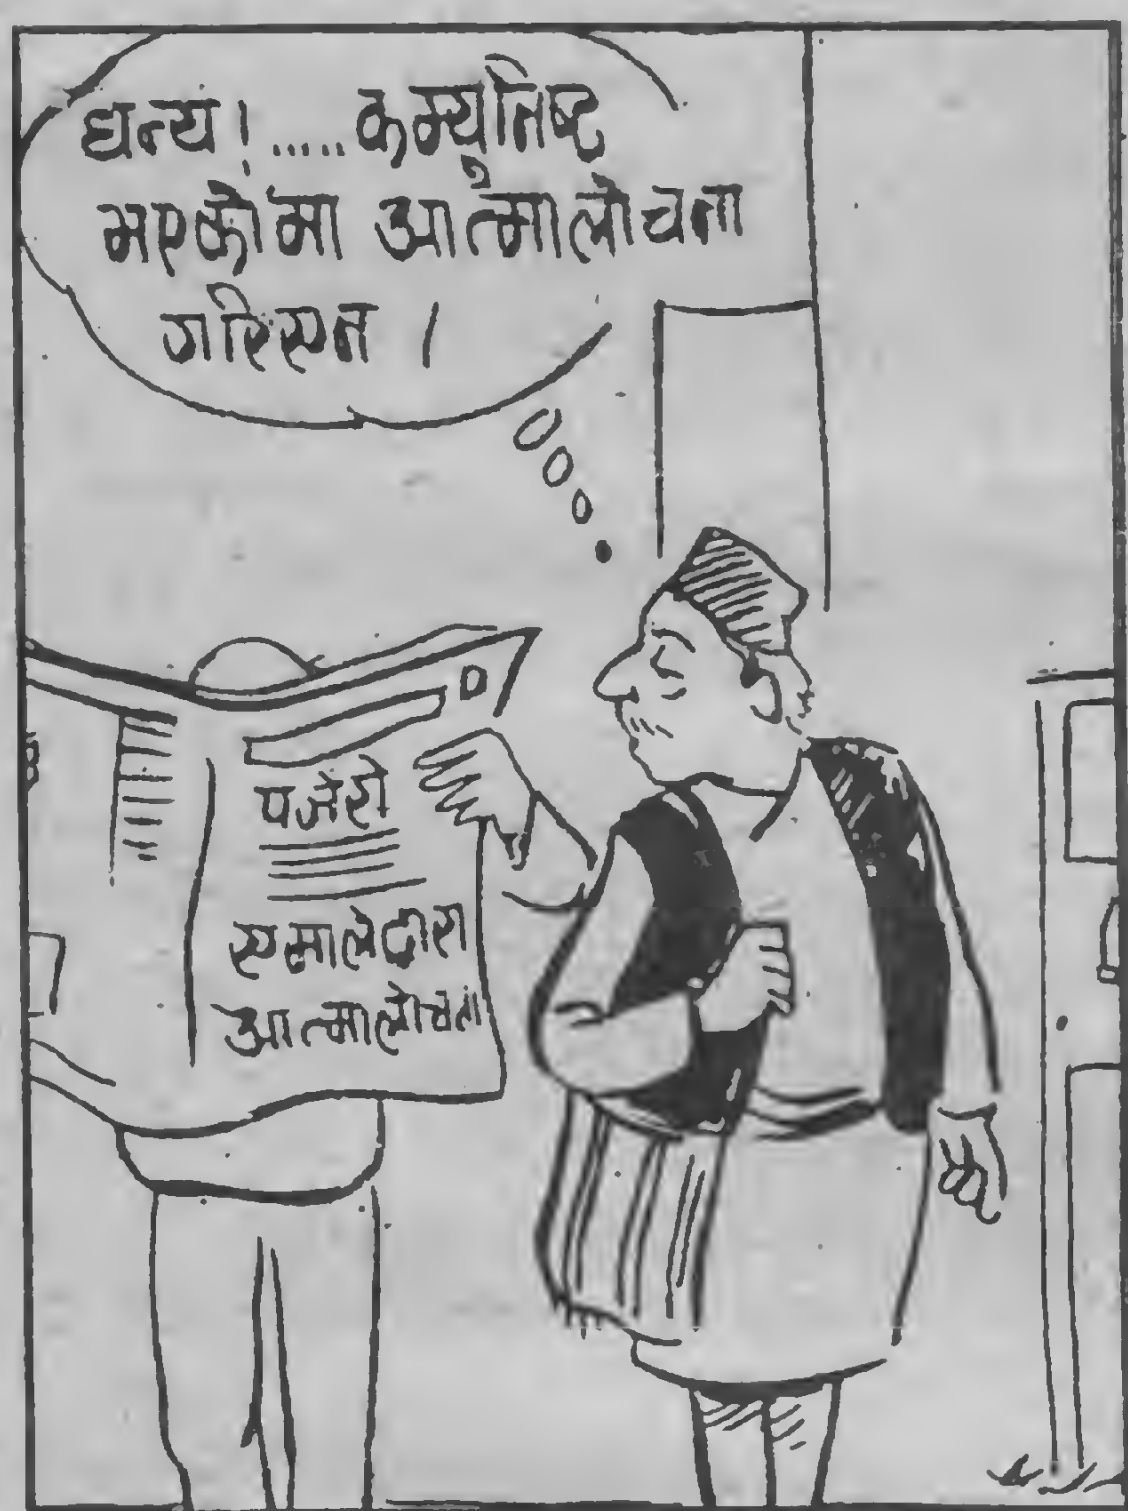 धन्य!.....कम्युनिष्ट
भएकोमा आत्मालोचना
गरिएन ।
पजेरो
एमालेद्वारा
आत्मालोचना